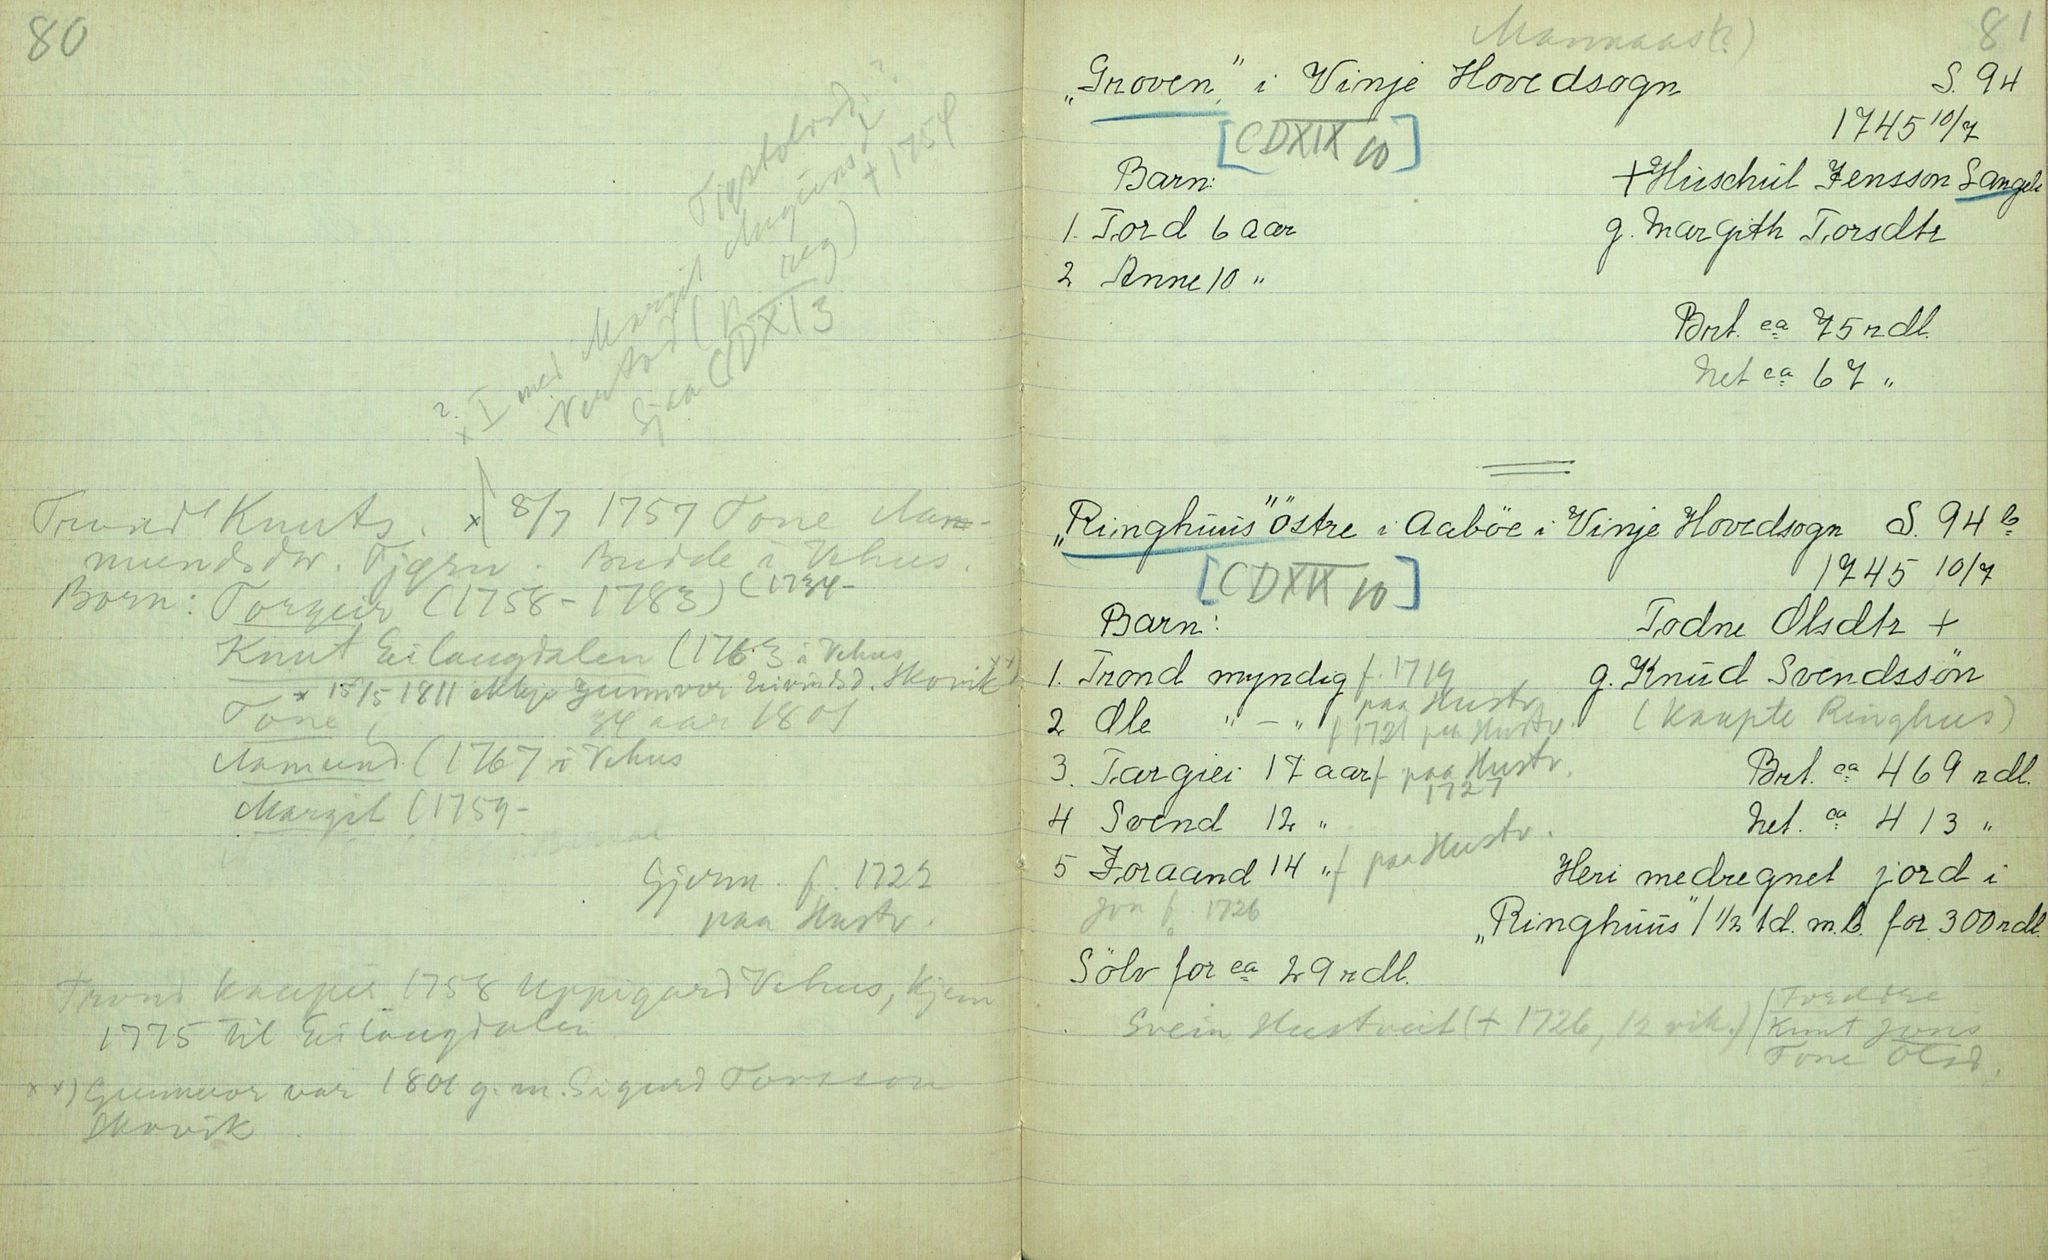 80
Margit
(p. reg)
+ 1754
Sjaa CDXI 3
x I med
Trond Knuts. x) 8/7 1757 Tone Aam-
mundsdtr. Budde i Vehus.
Born: Torgeir (1758 - 1783) (1734-
Knut Eilaugdalen (1763 i Vehus
x 15/5 1811 Gunnvor Eivindsd. Skovik xx)
Tone, 34 aar 1801
Aamund (1767 i Vehus
Margit (1759-
Gjerm. f. 1729
paa Hustv.
Trond kaupir 1758 Uppigard Vehus, kjem
1775 til Eilaugdalen
xx) Gunnvor var 1801 g.m. Sigurd Torsson
Skovik
81
„Groven" i Vinje Hovedsogn S. 94
[CDXIX 10] 1745 10/7
Barn: + Huschul Jensson Langeli
1. Tord 6 aar g. Margith Torsdtr
2 Anne 10 "
Brt. ca 75 rdl.
Net ca 67 "
„Ringhuus" Östre i Aaböe i Vinje Hovedsogn S. 94 b
[CDXIX 10] 1745 10/7
Barn: Todne Olsdtr +
1. Trond myndig f. 1719 paa Hustv. g. Knud Svendssön
2 Ole " - " f 1721 paa Hustv. (kaupte Ringhus)
3. Targiei 17 aar f paa Hustv. 1727 Brt. ca 469 rdl.
4 Svend 12 " Net. ca 413 "
5 Joraand 14 " f paa Hustv. Heri medregnet jord i
Jon f. 1726 „Ringhuus" 1 1/2 td. m.b. for 300 rdl.
Sölv for ca 29 rdl.
Svein Hustveit (+ 1726, 12 vik.) Foreldre
Knut Jons
Tone Olsd.